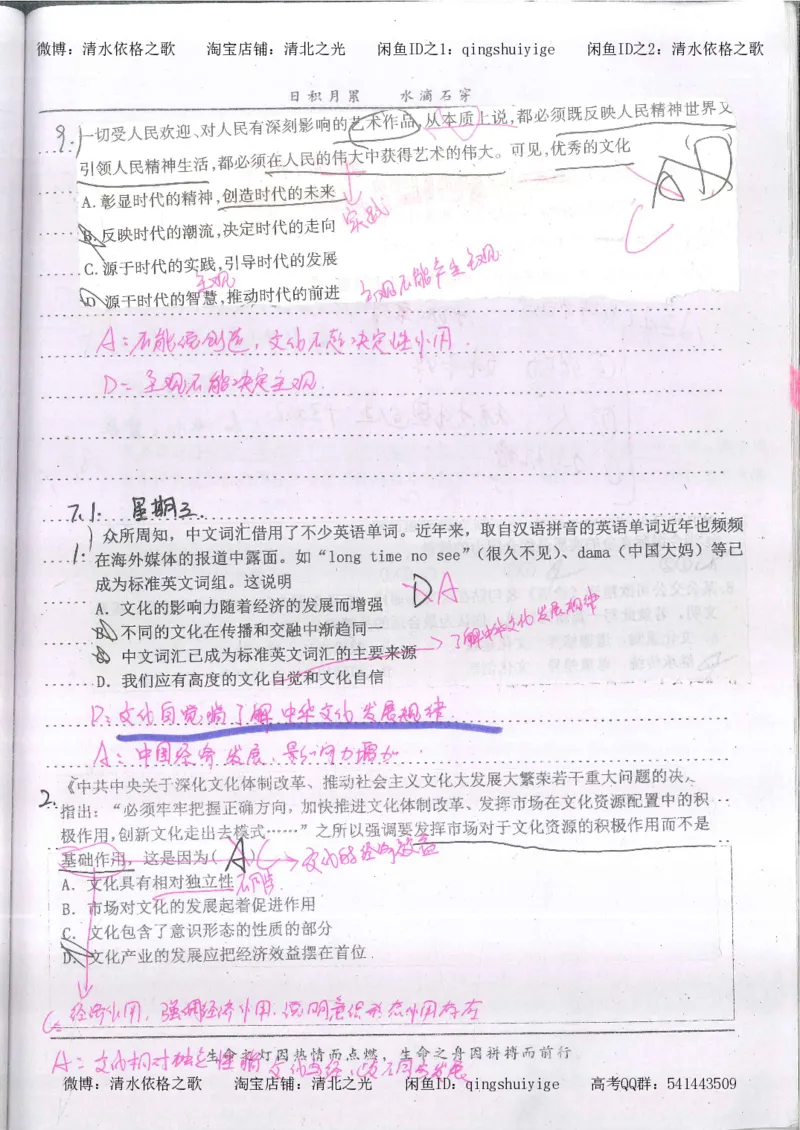 微博：清水依格之歌 淘宝店铺：清北之光 闲鱼ID之1：qingshuiyige 闲鱼ID之2：清水依格之歌
日积月累 水滴石穿
9.一切受人民欢迎、对人民有深刻影响的艺术作品,从本质上说,都必须既反映人民精神世界又
引领人民精神生活,都必须在人民的伟大中获得艺术的伟大。可见,优秀的文化
A.彰显时代的精神,创造时代的未来
实践
B.反映时代的潮流,决定时代的走向
C.源于时代的实践,引导时代的发展
主观 主观不能产生主观
D.源于时代的智慧,推动时代的前进
A：不能说创造，文化不起决定性作用.
D：主观不能决定主观.
7.1. 星期三.
1.众所周知，中文词汇借用了不少英语单词。近年来，取自汉语拼音的英语单词近年也频频
在海外媒体的报道中露面。如“long time no see”（很久不见）、dama（中国大妈）等已
成为标准英文词组。这说明
D A
A．文化的影响力随着经济的发展而增强
B．不同的文化在传播和交融中渐趋同一
了解中华文化发展规律
C．中文词汇已成为标准英文词汇的主要来源
D．我们应有高度的文化自觉和文化自信
D：文化自觉指了解中华文化发展规律.
A：中国经济发展，影响力增加.
2.《中共中央关于深化文化体制改革、推动社会主义文化大发展大繁荣若干重大问题的决
指出：“必须牢牢把握正确方向，加快推进文化体制改革、发挥市场在文化资源配置中的积
极作用,创新文化走出去模式……”之所以强调要发挥市场对于文化资源的积极作用而不是
基础作用，这是因为( A ) C 文化的经济效益
A．文化具有相对独立性
B．市场对文化的发展起着促进作用
C．文化包含了意识形态的性质的部分
D．文化产业的发展应把经济效益摆在首位
C：经济作用，强调经济作用.说明意识形态作用存在
生命之灯因热情而点燃，生命之舟因拼搏而前行
A：文化相对独立性指文化与经济、政治不同步发展
微博：清水依格之歌 淘宝店铺：清北之光 闲鱼ID之1：qingshuiyige 高考QQ群：541443509